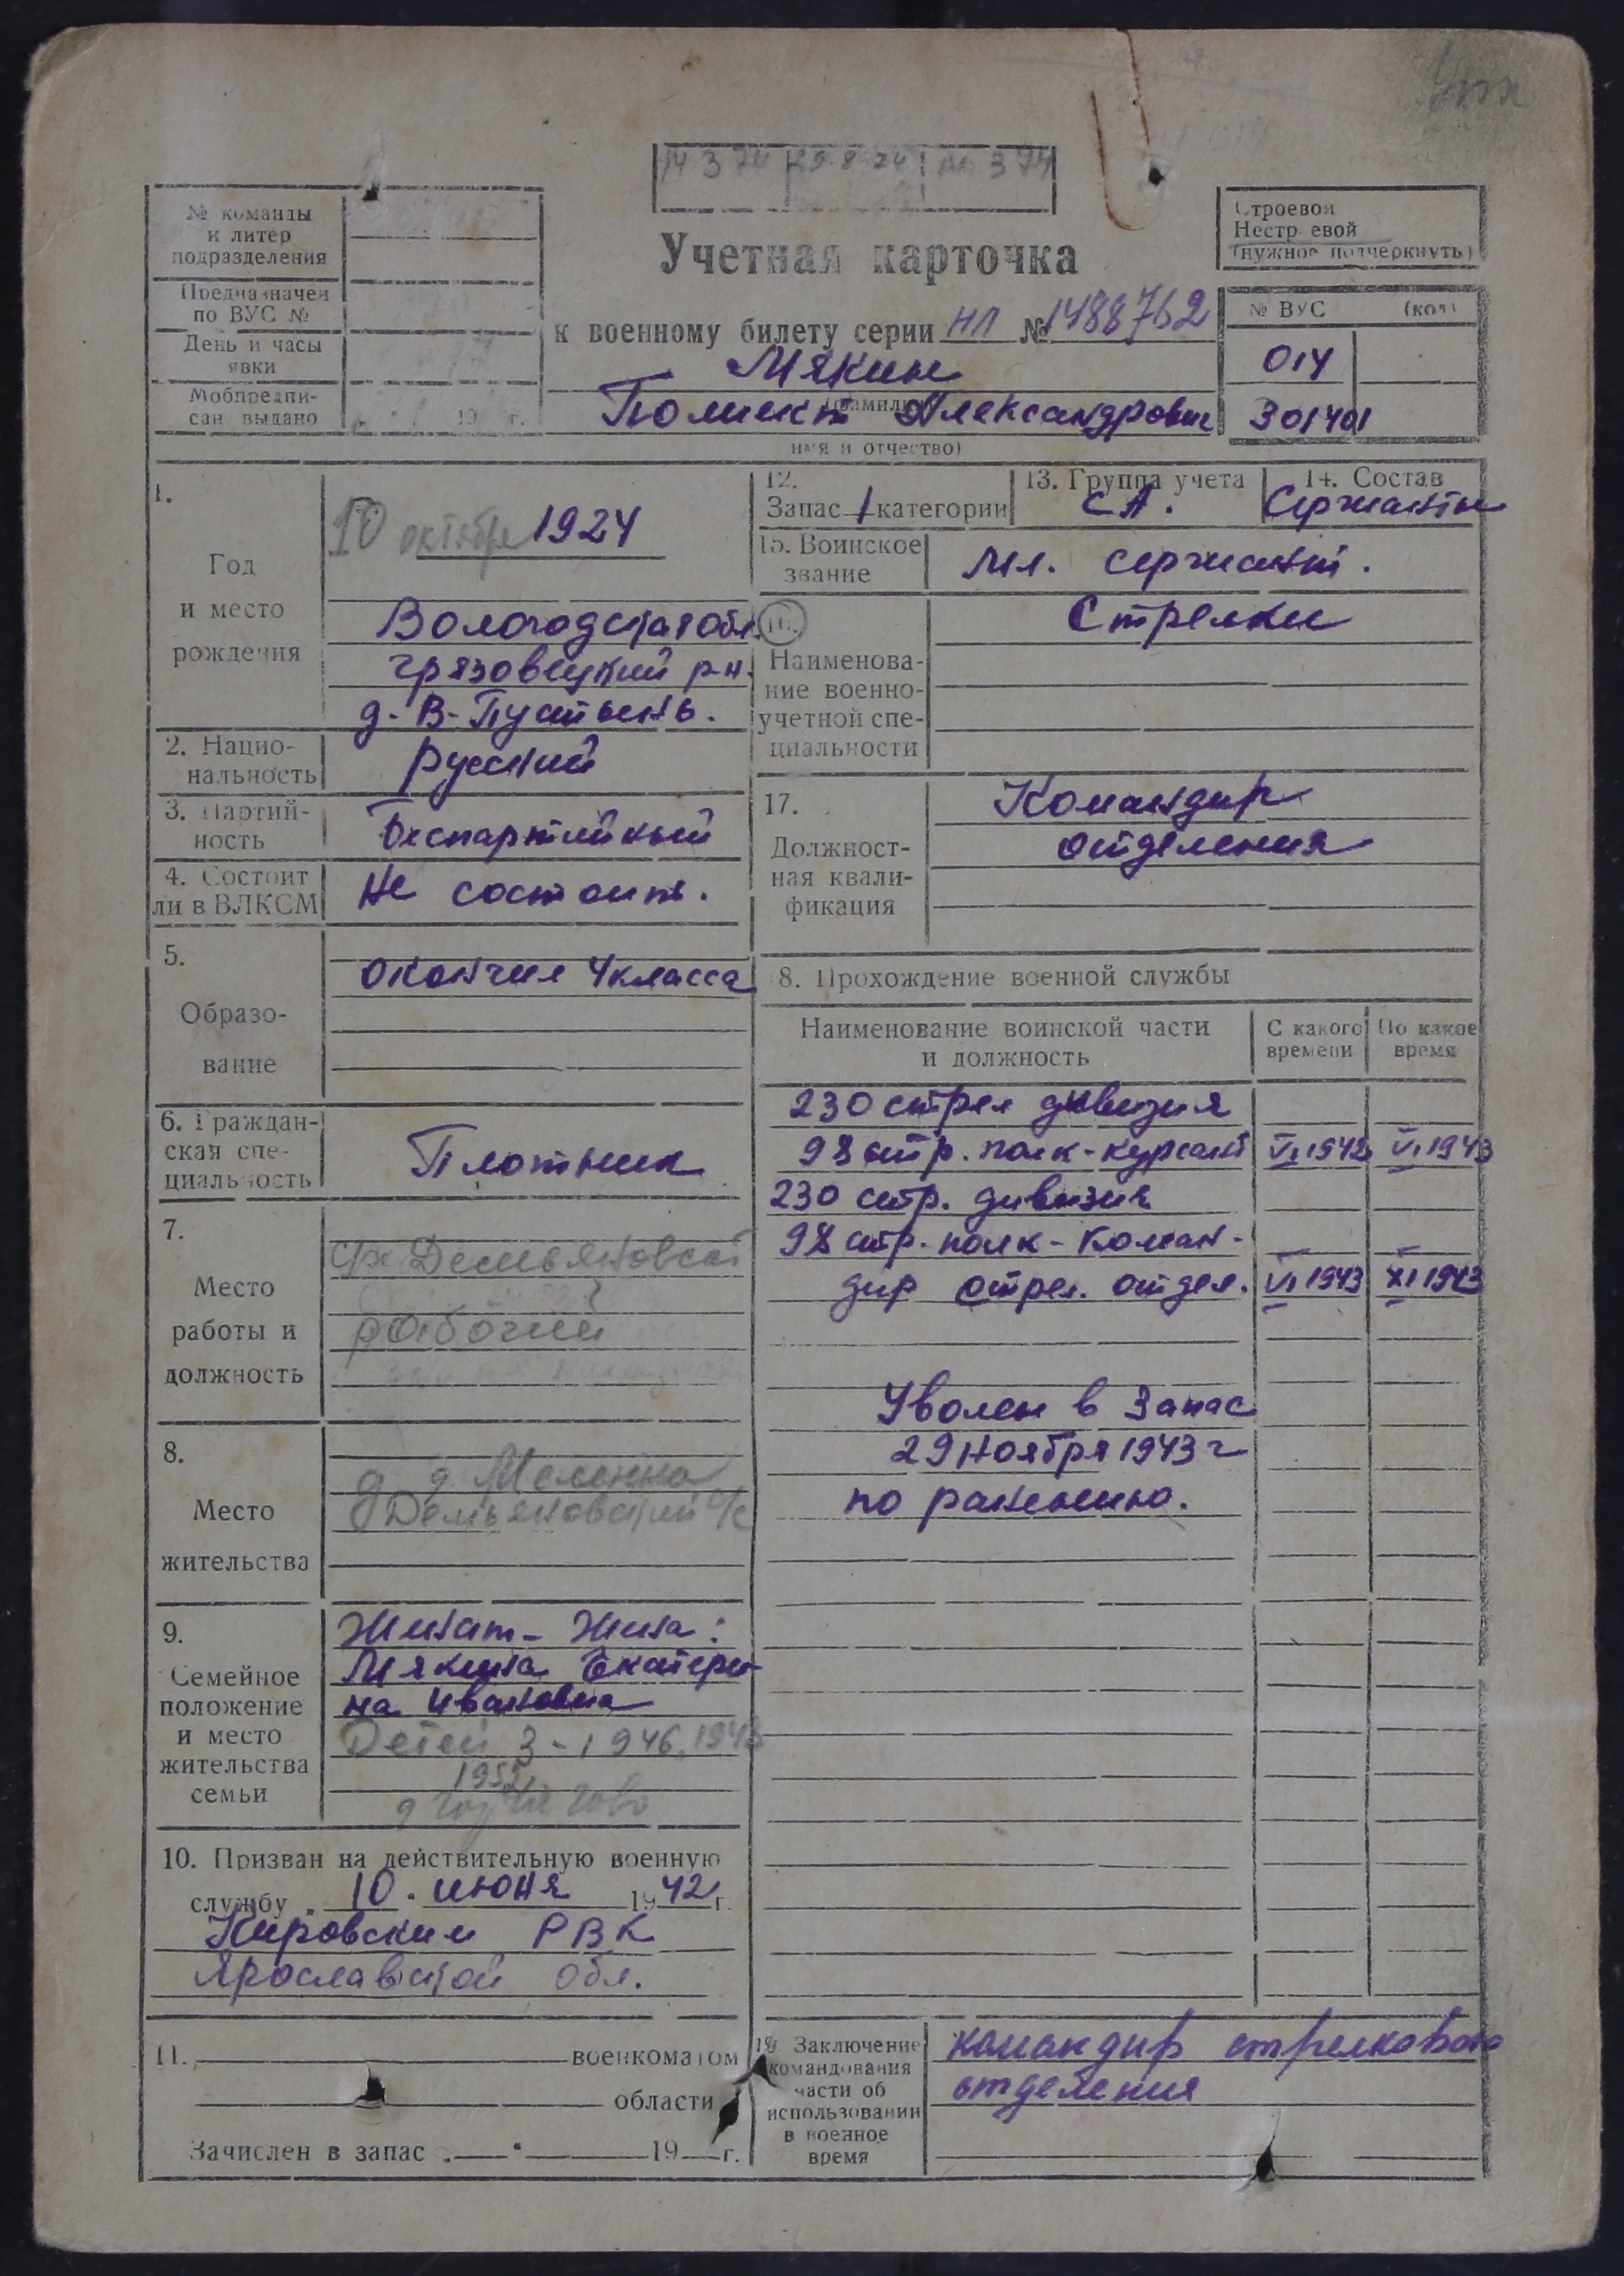 Упк
14 3 74 29 8 74 3 74
№ команды
и литер
подразделения
Предназначен
по ВУС №
День и часы
явки
Мобпредпи-
сан. выдано 19 г.
Учетная карточка
к военному билету серии НЛ № 1488762
Мякин
(фамилия)
Полиект Александрович
имя и отчество)
Строевой
Нестроевой
(нужное подчеркнуть)
№ ВУС (код)
014
301401
1.
Год
и место
рождения
10 октября 1924
Вологодская обл.
Грязовецкий р-н.
д. В-Пустынь.
2. Нацио-
нальность
русский
3. Партий-
ность
Беспартийный
4. Состоит
ли в ВЛКСМ
Не состоит.
5.
Образо-
вание
Окончил 4 класса
6. Граждан-
ская спе-
циальность
Плотник
7.
Место
работы и
должность
Демьяновский
рабочий
8.
Место
жительства
д. Меленка
Демьяновский с/с
9.
Семейное
положение
и место
жительства
семьи
Женат - Жена:
Мякина Екатери-
на Ивановна
Детей 3 - 1946, 1948
1952
10. Призван на действительную военную
службу 10. июня 1942 г.
Кировским РВК
Ярославской обл.
11. военкоматом
области
Зачислен в запас 19 г.
12.
Запас 1 категории
13. Группа учета
СА.
14. Состав
Сержанты
15. Воинское
звание
Мл. сержант.
16.
Наименова-
ние военно-
учетной спе-
циальности
Стрелки
17.
Должност-
ная квали-
фикация
Командир
отделения
8. Прохождение военной службы
Наименование воинской части
и должность
С какого
времени
По какое
время
230 стрел дивизия
98 стр. полк - курсант VI 1942 VI 1943
230 стр. дивизия
98 стр. полк - Коман-
дир стрел. отдел. VI 1943 XI 1943
Уволен в Запас
29 Ноября 1943 г
по ранению.
19. Заключение
командования
части об
использовании
в военное
время
командир стрелкового
отделения